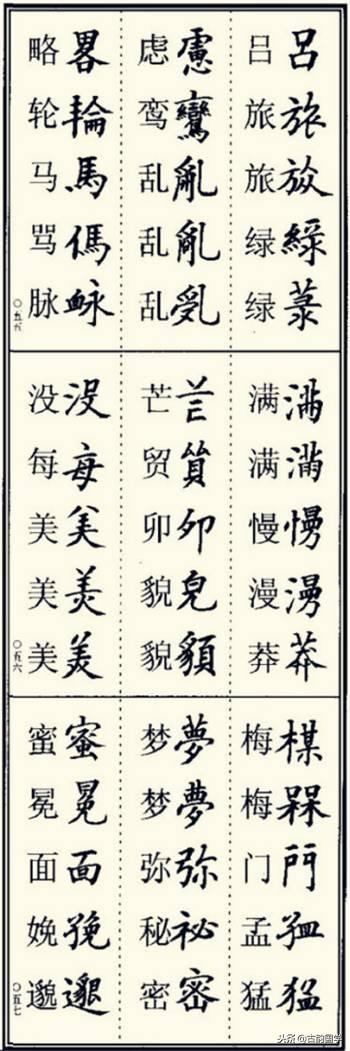 吕 呂
旅 旅
旅
绿 綠
绿 菉
虑 慮
鸾 鸞
乱 亂
乱 亂
乱
略 畧
轮 輪
马 馬
骂 傌
脉 䘑
〇五五
满 滿
满 滿
慢 慢
漫 漫
莽 莽
芒 芒
贸
卯 卯
貌 皃
貌 䫉
没 没
每 每
美
美 美
美 美
〇五六
梅 楳
梅 槑
门 門
孟
猛 猛
梦 夢
梦 夢
弥 弥
秘 祕
密 密
蜜 蜜
冕 冕
面 面
娩
邈 邈
〇五七
头条@古韵国学